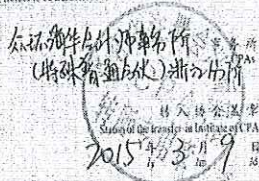 众环海华会计师事务所
事务所
CPAs
(特殊普通合伙)浙江分所
转入协会盖章
Stamp of the transfer-in Institute of CPAs
2015年3月9日